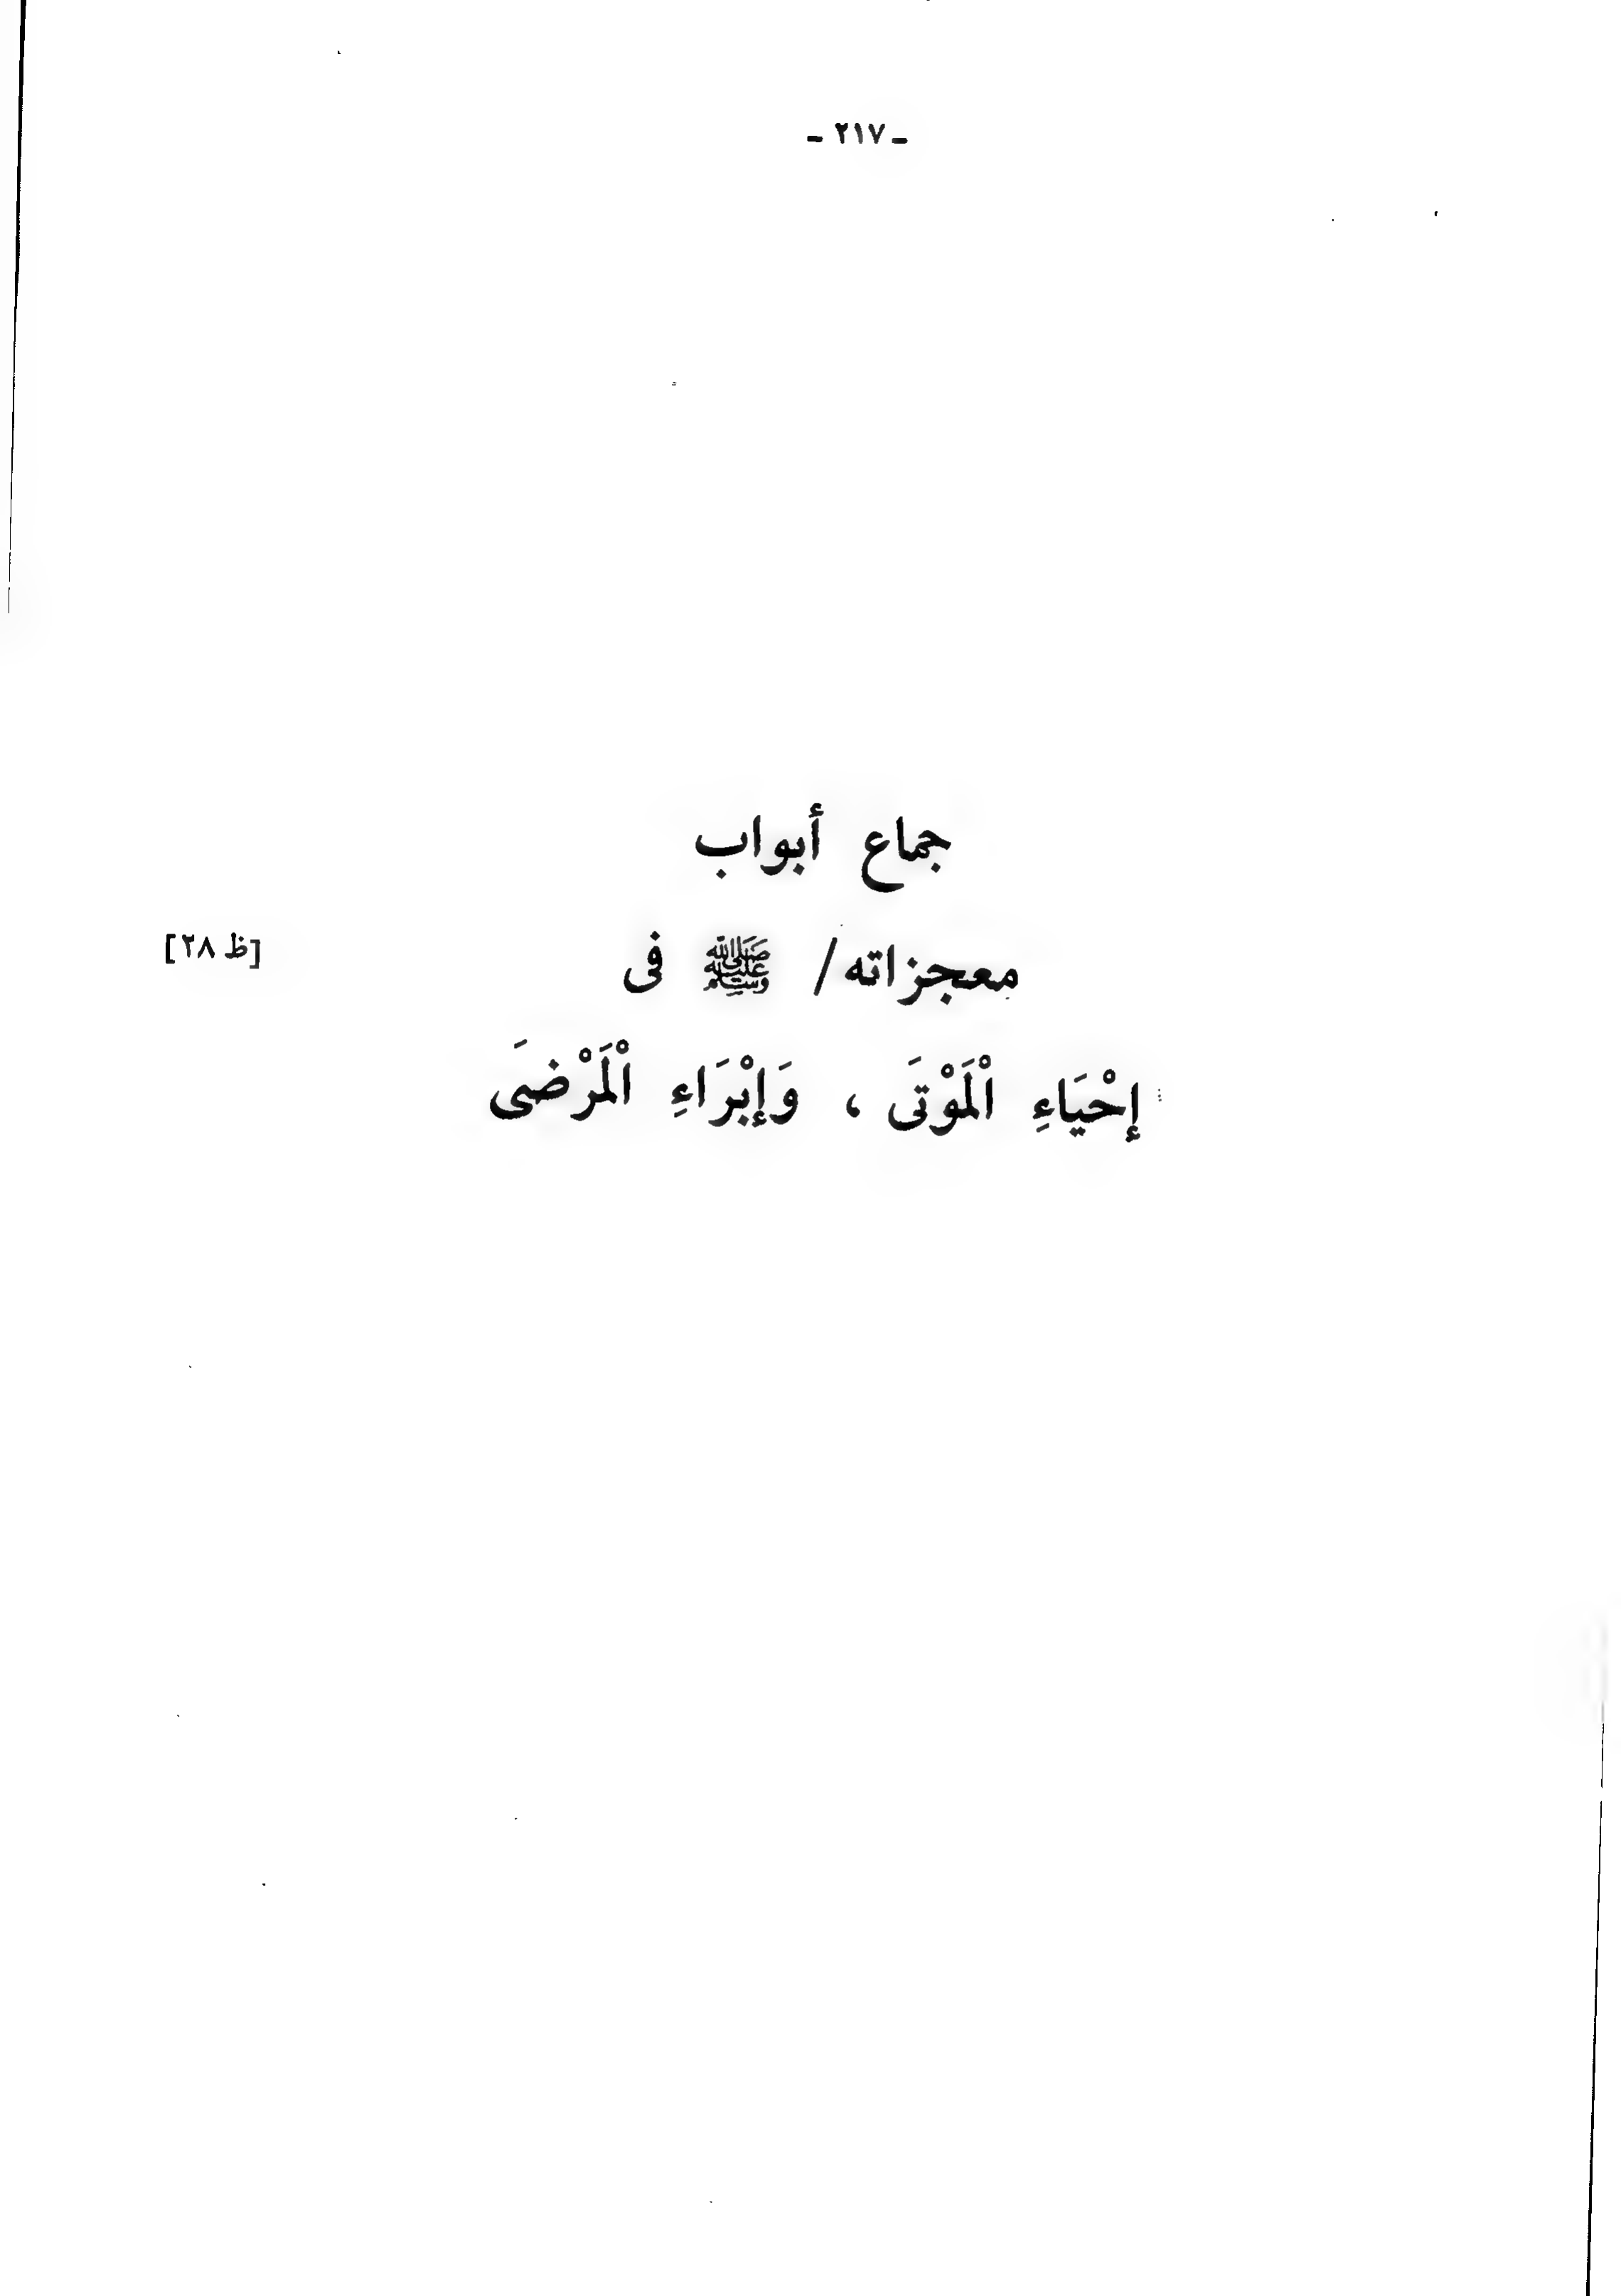 ـ ٢١٧ ـ
جماع أبواب
معجزاته/ ﷺ فى
[ظ ٢٨]
إِحْيَاءِ اْلَمَوْتَى ، وَإِبْرَاءِ اْلَمَرْضىَ